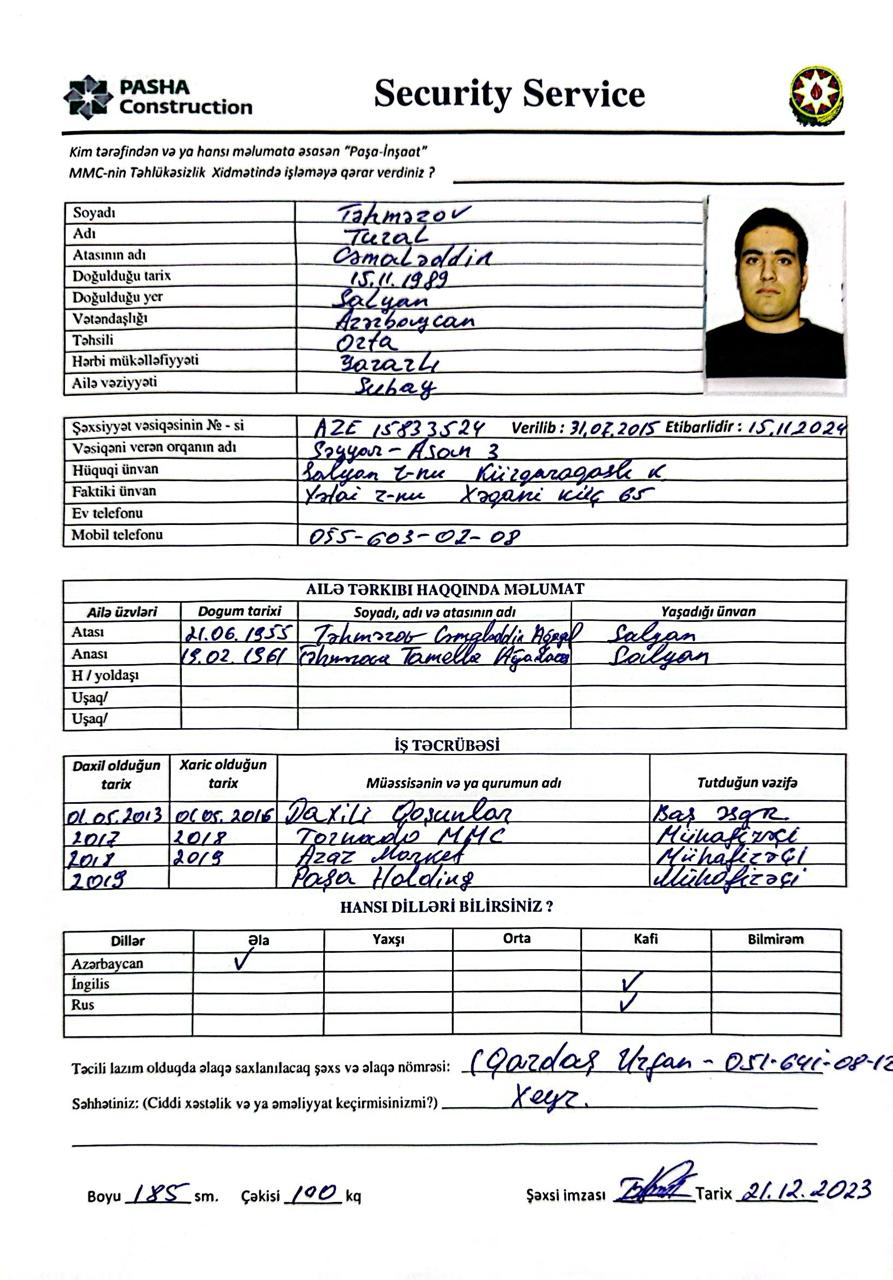 PASHA
Construction
Security Service
Kim tərəfindən və ya hansı məlumata əsasən "Paşa-İnşaat"
MMC-nin Təhlükəsizlik Xidmətində işləməyə qərar verdiniz ?
Soyadı Təhməzov
Adı Tural
Atasının adı Cəmaləddin
Doğulduğu tarix 15.11.1989
Doğulduğu yer Salyan
Vətəndaşlığı Azərbaycan
Təhsili Orta
Hərbi mükəlləfiyyəti Yararlı
Ailə vəziyyəti Subay
Şəxsiyyət vəsiqəsinin № - si AZE 15833524 Verilib : 31.07.2015 Etibarlidir : 15.11.2024
Vəsiqəni verən orqanın adı Səyyar - Asan 3
Hüquqi ünvan Salyan r-nu Kürqaraqaşlı k
Faktiki ünvan Xətai r-nu Xəqani küç 65
Ev telefonu
Mobil telefonu 055-603-02-08
AILƏ TƏRKIBI HAQQINDA MƏLUMAT
Ailə üzvləri Dogum tarixi Soyadı, adı və atasının adı Yaşadığı ünvan
Atası 21.06.1955 Təhməzov Cəmaləddin Salyan
Anası 19.02.1961 Təhməzova Tamella Salyan
H / yoldaşı
Uşaq/
Uşaq/
İŞ TƏCRÜBƏSİ
Daxil olduğun tarix Xaric olduğun tarix Müəssisənin və ya qurumun adı Tutduğun vəzifə
01.05.2013 01.05.2016 Daxili Qoşunlar Baş əsgr
2017 2018 Tornado MMC Mühafizəçi
2018 2019 Araz Market Mühafizəçi
2019 Paşa Holding Mühafizəçi
HANSI DİLLƏRİ BİLIRSİNİZ ?
Dillər Əla Yaxşı Orta Kafi Bilmirəm
Azərbaycan ✓
İngilis ✓
Rus ✓
Təcili lazım olduqda əlaqə saxlanılacaq şəxs və əlaqə nömrəsi: (Qardaş Urfan - 051-641-08-12
Səhhətiniz: (Ciddi xəstəlik və ya əməliyyat keçirmisinizmi?) Xeyr.
Boyu 185 sm. Çəkisi 100 kq Şəxsi imzası Tarix 21.12.2023